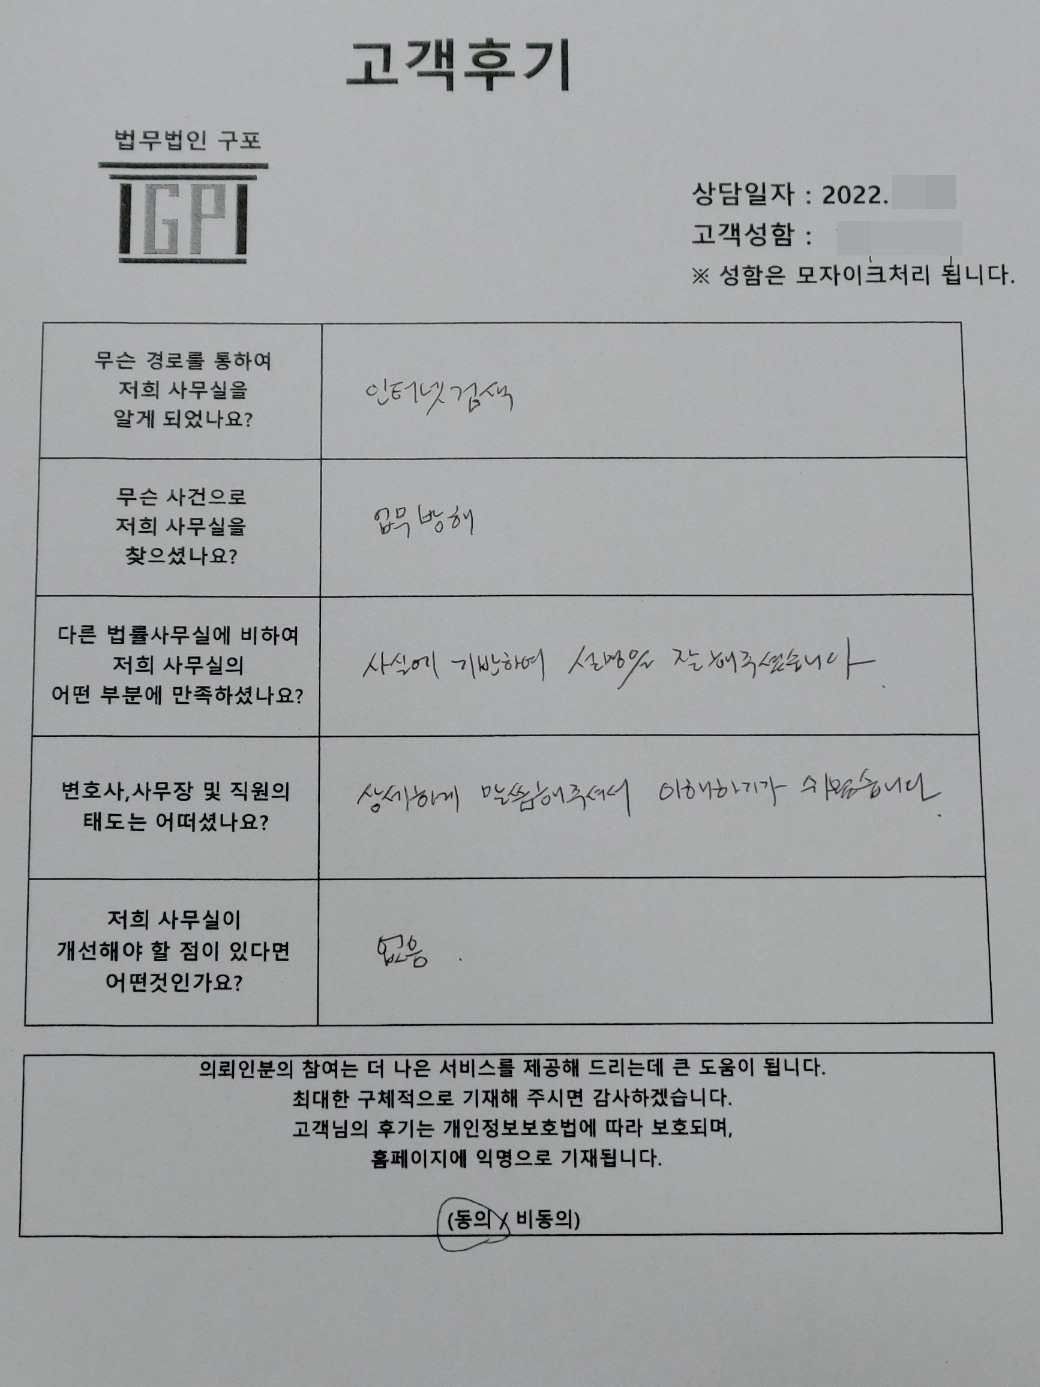 고객후기
법무법인 구포
IGPI
상담일자 : 2022.
고객성함 :
※ 성함은 모자이크처리 됩니다.
무슨 경로를 통하여
저희 사무실을
알게 되었나요?
인터넷 검색
무슨 사건으로
저희 사무실을
찾으셨나요?
업무방해
다른 법률사무실에 비하여
저희 사무실의
어떤 부분에 만족하셨나요?
사실에 기반하여 설명을 잘 해주셨습니다.
변호사,사무장 및 직원의
태도는 어떠셨나요?
상세하게 말씀해주셔서 이해하기가 쉬웠습니다.
저희 사무실이
개선해야 할 점이 있다면
어떤것인가요?
없음.
의뢰인분의 참여는 더 나은 서비스를 제공해 드리는데 큰 도움이 됩니다.
최대한 구체적으로 기재해 주시면 감사하겠습니다.
고객님의 후기는 개인정보보호법에 따라 보호되며,
홈페이지에 익명으로 기재됩니다.
(동의 / 비동의)